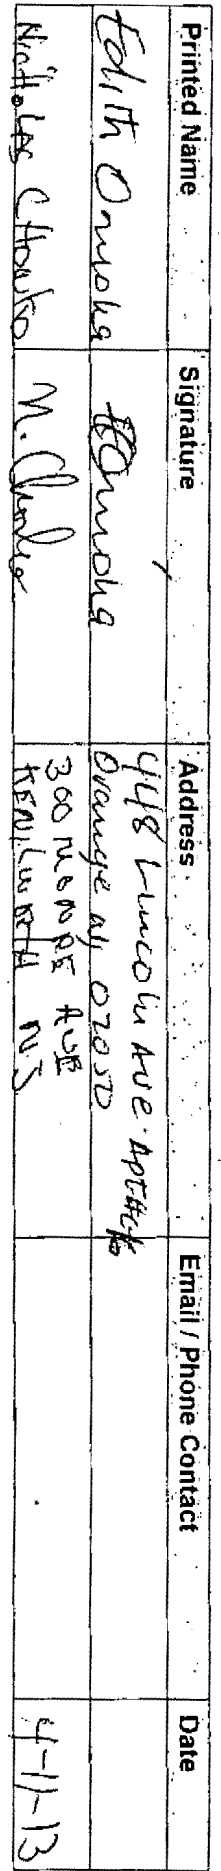 Printed Name Signature Address Email / Phone Contact Date
Edith Omuoha EOmuoha 448 Lincoln Ave
Orange NJ 07050
Nicholas N. 300 MONROE AVE
KENILWORTH NJ 4-11-13